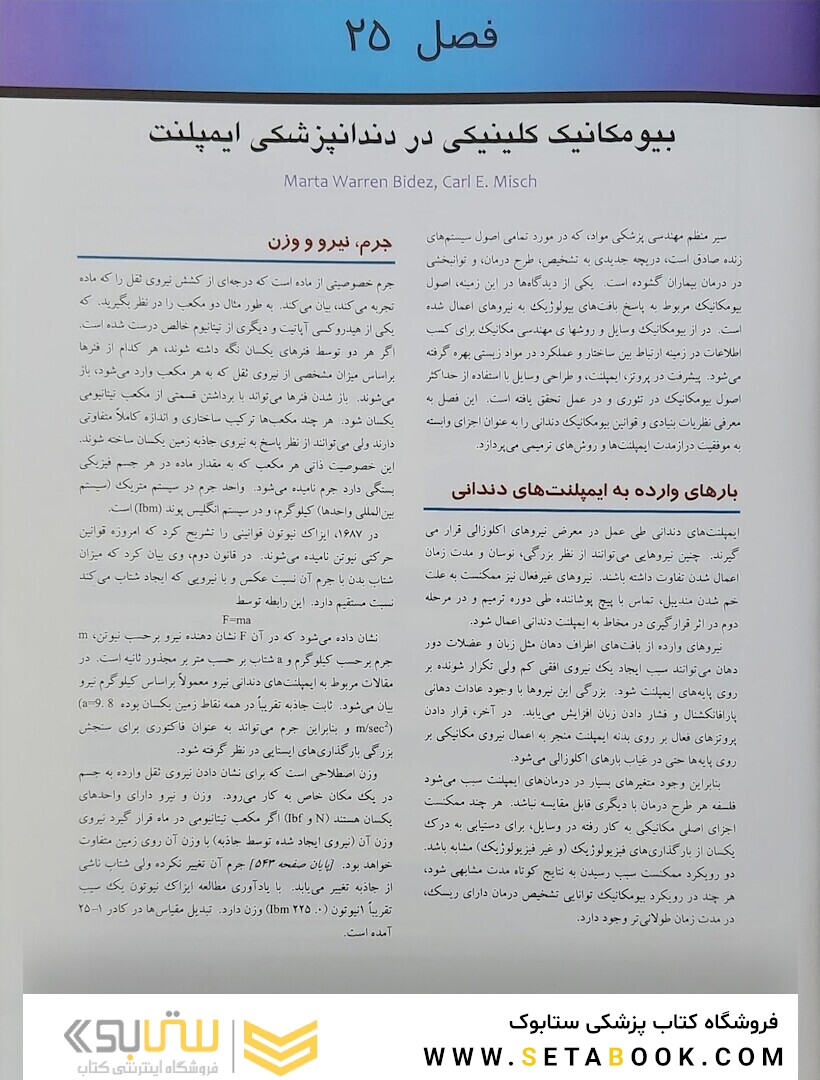 فصل ۲۵
بیومکانیک کلینیکی در دندانپزشکی ایمپلنت
Marta Warren Bidez, Carl E. Misch
سیر منظم مهندسی پزشکی مواد، که در مورد تمامی اصول سیستم‌های
زنده صادق است، دریچه جدیدی به تشخیص، طرح درمان، و توانبخشی
در درمان بیماران گشوده است. یکی از دیدگاه‌ها در این زمینه، اصول
بیومکانیک مربوط به پاسخ بافت‌های بیولوژیک به نیروهای اعمال شده
است. در از بیومکانیک وسایل و روشها ی مهندسی مکانیک برای کسب
اطلاعات در زمینه ارتباط بین ساختار و عملکرد در مواد زیستی بهره گرفته
می‌شود. پیشرفت در پروتز، ایمپلنت، و طراحی وسایل با استفاده از حداکثر
اصول بیومکانیک در تئوری و در عمل تحقق یافته است. این فصل به
معرفی نظریات بنیادی و قوانین بیومکانیک دندانی را به عنوان اجزای وابسته
به موفقیت درازمدت ایمپلنت‌ها و روش‌های ترمیمی می‌پردازد.
بارهای وارده به ایمپلنت‌های دندانی
ایمپلنت‌های دندانی طی عمل در معرض نیروهای اکلوزالی قرار می
گیرند. چنین نیروهایی می‌توانند از نظر بزرگی، نوسان و مدت زمان
اعمال شدن تفاوت داشته باشند. نیروهای غیرفعال نیز ممکنست به علت
خم شدن مندیبل، تماس با پیچ پوشاننده طی دوره ترمیم و در مرحله
دوم در اثر قرارگیری در مخاط به ایمپلنت دندانی اعمال شود.
نیروهای وارده از بافت‌های اطراف دهان مثل زبان و عضلات دور
دهان می‌توانند سبب ایجاد یک نیروی افقی کم ولی تکرار شونده بر
روی پایه‌های ایمپلنت شود. بزرگی این نیروها با وجود عادات دهانی
پارافانکشنال و فشار دادن زبان افزایش می‌یابد. در آخر، قرار دادن
پروتزهای فعال بر روی بدنه ایمپلنت منجر به اعمال نیروی مکانیکی بر
روی پایه‌ها حتی در غیاب بارهای اکلوزالی می‌شود.
بنابراین وجود متغیرهای بسیار در درمان‌های ایمپلنت سبب می‌شود
فلسفه هر طرح درمان با دیگری قابل مقایسه نباشد. هر چند ممکنست
اجزای اصلی مکانیکی به کار رفته در وسایل، برای دستیابی به درک
یکسان از بارگذاری‌های فیزیولوژیک (و غیر فیزیولوژیک) مشابه باشد.
دو رویکرد ممکنست سبب رسیدن به نتایج کوتاه مدت مشابهی شود،
هر چند در رویکرد بیومکانیک توانایی تشخیص درمان دارای ریسک،
در مدت زمان طولانی‌تر وجود دارد.
جرم، نیرو و وزن
جرم خصوصیتی از ماده است که درجه‌ای از کشش نیروی ثقل را که ماده
تجربه می‌کند، بیان می‌کند. به طور مثال دو مکعب را در نظر بگیرید. که
یکی از هیدروکسی آپاتیت و دیگری از تیتانیوم خالص درست شده است.
اگر هر دو توسط فنرهای یکسان نگه داشته شوند، هر کدام از فنرها
براساس میزان مشخصی از نیروی ثقل که به هر مکعب وارد می‌شود، باز
می‌شوند. باز شدن فنرها می‌تواند با برداشتن قسمتی از مکعب تیتانیومی
یکسان شود. هر چند مکعب‌ها ترکیب ساختاری و اندازه کاملاً متفاوتی
دارند ولی می‌توانند از نظر پاسخ به نیروی جاذبه زمین یکسان ساخته شوند.
این خصوصیت ذاتی هر مکعب که به مقدار ماده در هر جسم فیزیکی
بستگی دارد جرم نامیده می‌شود. واحد جرم در سیستم متریک (سیستم
بین‌المللی واحدها) کیلوگرم، و در سیستم انگلیس پوند (Ibm) است.
در ۱۶۸۷، ایزاک نیوتون قوانینی را تشریح کرد که امروزه قوانین
حرکتی نیوتن نامیده می‌شوند. در قانون دوم، وی بیان کرد که میزان
شتاب بدن با جرم آن نسبت عکس و با نیرویی که ایجاد شتاب می‌کند
نسبت مستقیم دارد. این رابطه توسط
F=ma
نشان داده می‌شود که در آن F نشان دهنده نیرو برحسب نیوتن، m
جرم برحسب کیلوگرم و a شتاب بر حسب متر بر مجذور ثانیه است. در
مقالات مربوط به ایمپلنت‌های دندانی نیرو معمولاً براساس کیلوگرم نیرو
بیان می‌شود. ثابت جاذبه تقریباً در همه نقاط زمین یکسان بوده (a=9. 8
m/sec²) و بنابراین جرم می‌تواند به عنوان فاکتوری برای سنجش
بزرگی بارگذاری‌های ایستایی در نظر گرفته شود.
وزن اصطلاحی است که برای نشان دادن نیروی ثقل وارده به جسم
در یک مکان خاص به کار می‌رود. وزن و نیرو دارای واحدهای
یکسان هستند (N و Ibf) اگر مکعب تیتانیومی در ماه قرار گیرد نیروی
وزن آن (نیروی ایجاد شده توسط جاذبه) با وزن آن روی زمین متفاوت
خواهد بود. [پایان صفحه ۵۴۳] جرم آن تغییر نکرده ولی شتاب ناشی
از جاذبه تغییر می‌یابد. با یادآوری مطالعه ایزاک نیوتون یک سیب
تقریباً ۱نیوتون (۰. ۲۲۵ Ibm) وزن دارد. تبدیل مقیاس‌ها در کادر ۱-۲۵
آمده است.
فروشگاه کتاب پزشکی ستابوک
WWW.SETABOOK.COM
ستابوک
فروشگاه اینترنتی کتاب